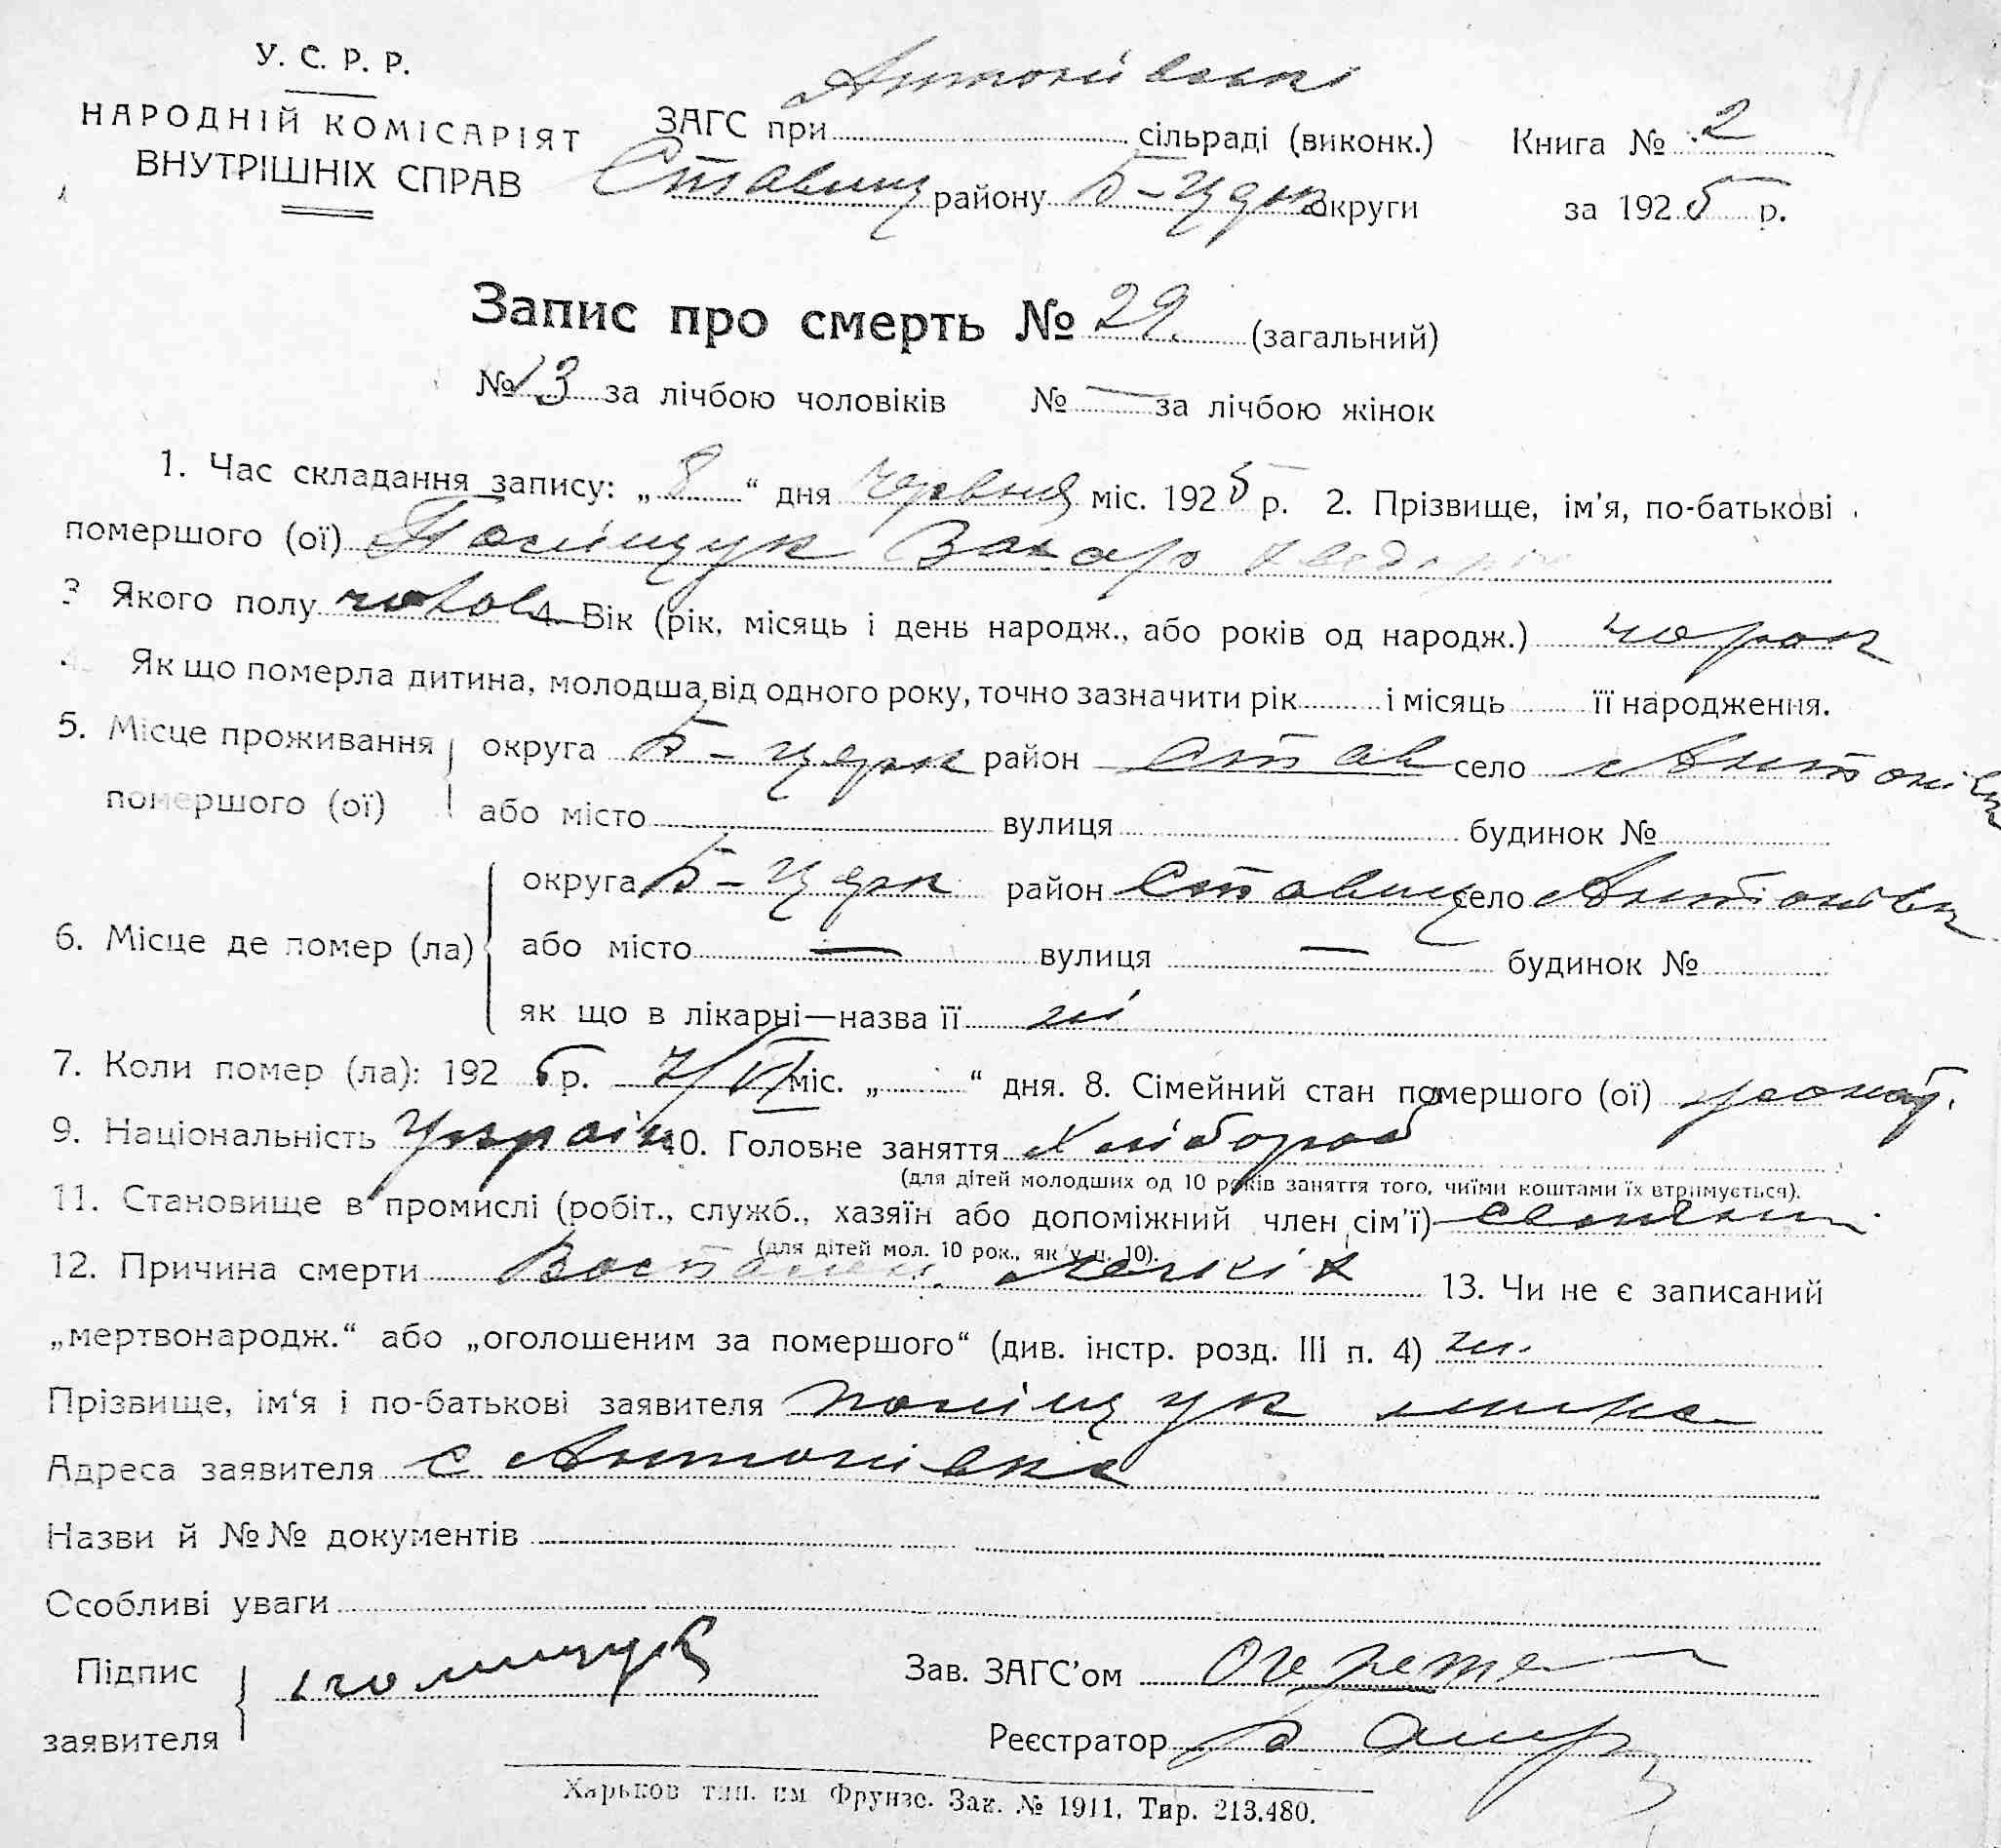 У. С. Р. Р.
НАРОДНІЙ КОМІСАРІЯТ
ВНУТРІШНІХ СПРАВ
ЗАГС при Антонівські сільраді (виконк.) Книга № 2
Ставищ району Б-Церк округи за 1925 р.
Запис про смерть № 29. (загальний)
№ 13 за лічбою чоловіків № — за лічбою жінок
1. Час складання запису: „8“ дня червня міс. 1925 р. 2. Прізвище, ім'я, по-батькові
помершого (ої) Поліщук Захар
3 Якого полу чолов 4. Вік (рік, місяць і день народж., або років од народж.)
Як що померла дитина, молодша від одного року, точно зазначити рік і місяць її народження.
5. Місце проживання помершого (ої) округа Б-Церк район Став село Антонівк
або місто вулиця будинок №
6. Місце де помер (ла) округа Б-Церк район Ставищ село Антонівк
або місто — вулиця — будинок №
як що в лікарні—назва її ні
7. Коли помер (ла): 1925 р. 7/VI міс. „ “ дня. 8. Сімейний стан помершого (ої)
9. Національність Україн 10. Головне заняття Хлібороб
(для дітей молодших од 10 років заняття того, чиїми коштами їх втримується).
11. Становище в промислі (робіт., служб., хазяїн або допоміжний член сім'ї)
(для дітей мол. 10 рок., як у п. 10).
12. Причина смерти Воспален. легкіх 13. Чи не є записаний
„мертвонародж.“ або „оголошеним за помершого“ (див. інстр. розд. III п. 4) ні.
Прізвище, ім'я і по-батькові заявителя поліщук
Адреса заявителя с Антонівка
Назви й №№ документів
Особливі уваги
Підпис заявителя Зав. ЗАГС'ом
Реєстратор
Харьков тип. им Фрунзе. Зак. № 1911. Тир. 213.480.